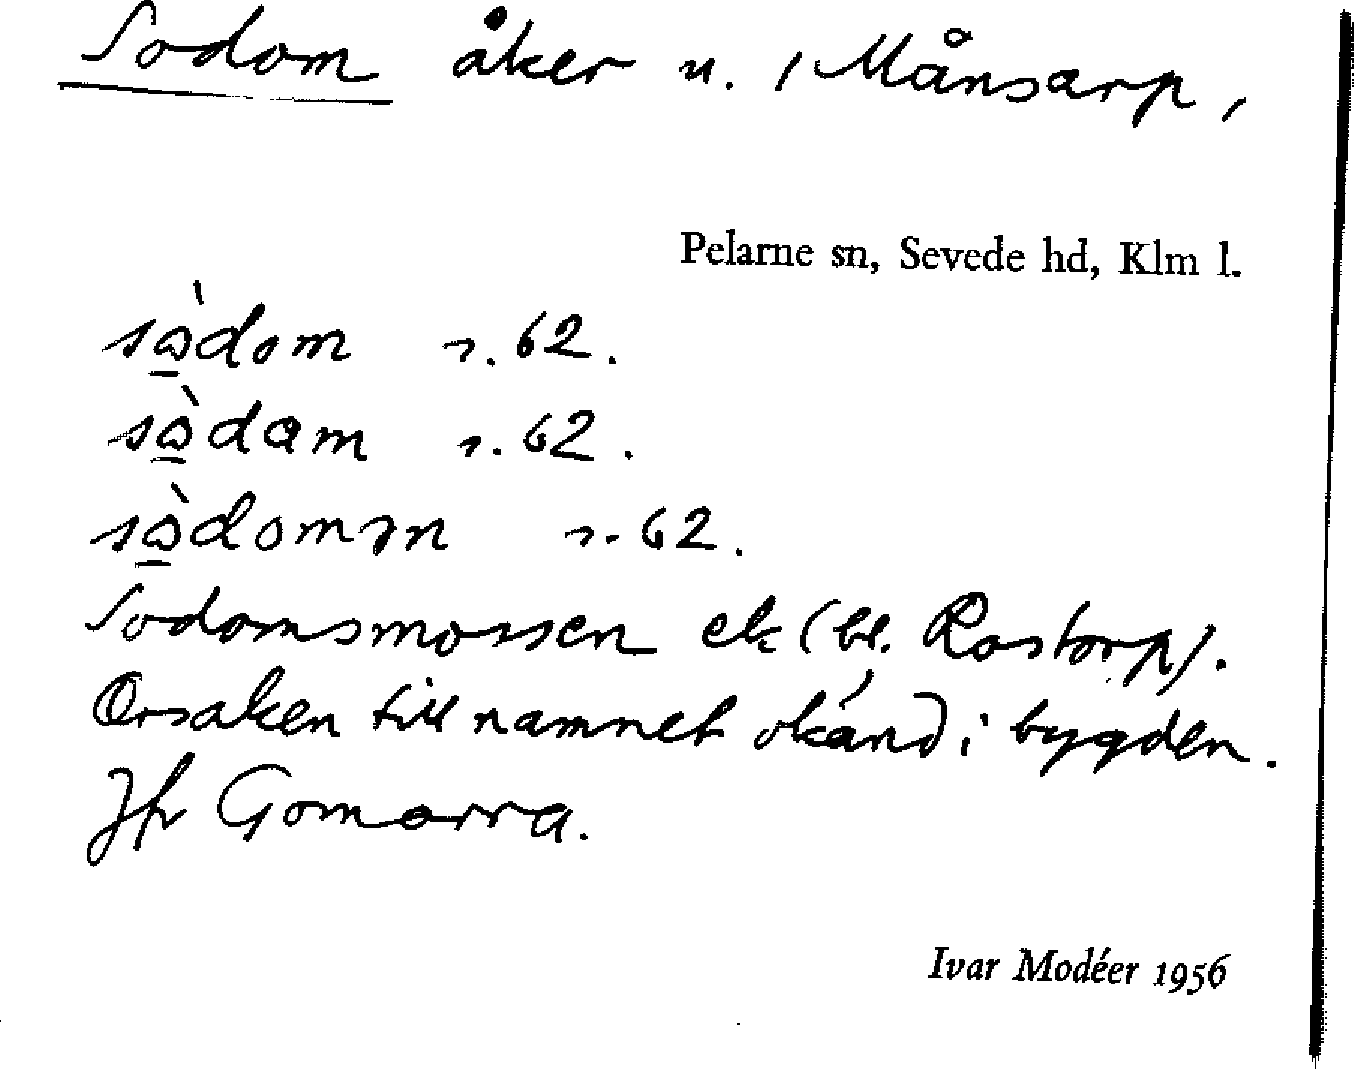 Sodom åker n. 1 Månsarp,
Pelarne sn, Sevede hd, Klm l.
sɷ̀dom s. 62.
sɷ̀dam s. 62.
sɷ̀domən s. 62.
Sodomsmossen ek (bl. Rostorp).
Orsaken till namnet okänd i bygden.
Jfr Gomorra.
Ivar Modéer 1956